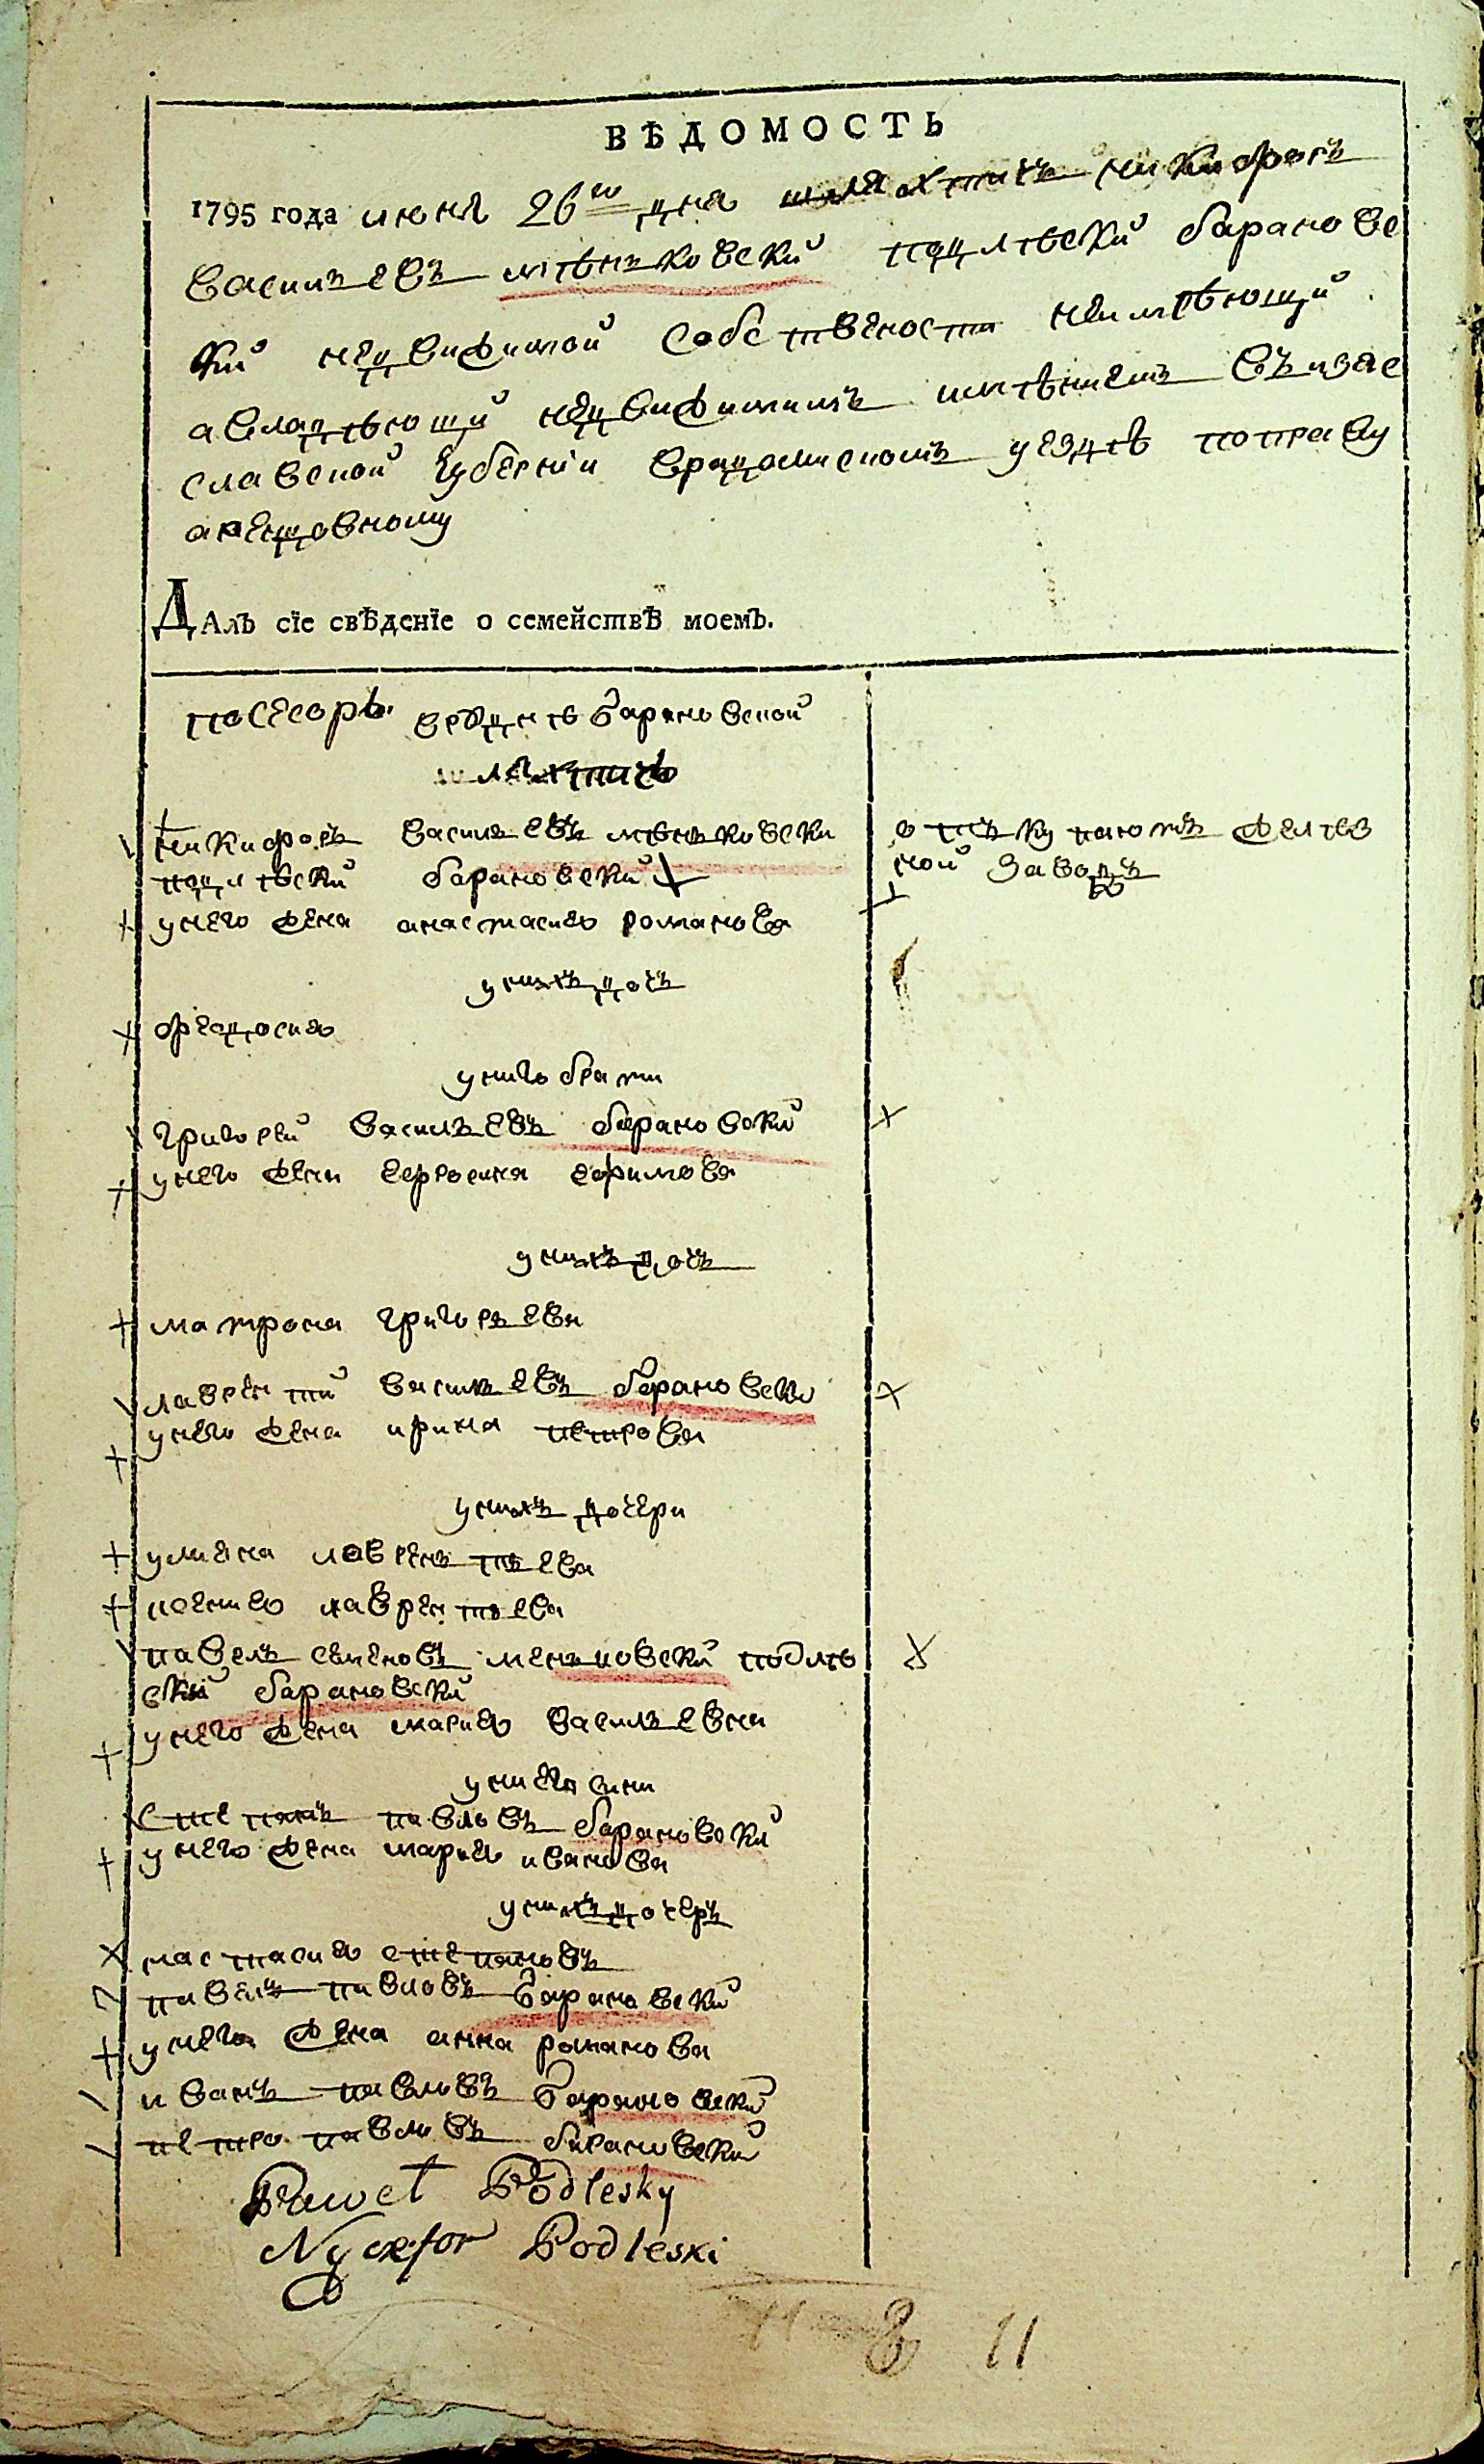 ВѢДОМОСТЬ
1795 года июня 26го дня шляхтичъ никифоръ
васильевъ мѣньковски подлѣски барановс
ки недвижимой собствености неимѣющий
авладѣющий недвижимимъ имѣниемъ въ изяс
славской губернии врадомисломъ уездѣ поправу
арендовному
Далъ сїе свѣденїе о семействѣ моемъ.
посесоръ вруднѣ барановской
шляхтичь
никифоръ васильевъ мѣньковски
подлѣский барановский
унего жена анастасия романова
унихъ дочъ
федосия
унего брати
григорей васильевъ барановский
унего жена ефросиня ефимова
унихъ дочъ
матрона григорьева
лаврентий васильевъ барановски
унего жена ирина петрова
унихъ дочери
улияна лаврентьева
ксения лаврентьева
павелъ семеновъ менковский подлѣ
ский барановский
унего жена мария васильевна
унего сини
степанъ павловъ барановский
унего жена мария иванова
унихъ дочеръ
настасия степановъ
павелъ павловъ барановский
унего жена анна романова
иванъ павловъ барановский
петро павловъ барановский
Pawel Podlesky
Nyczyfor Podleski
заводъ
11